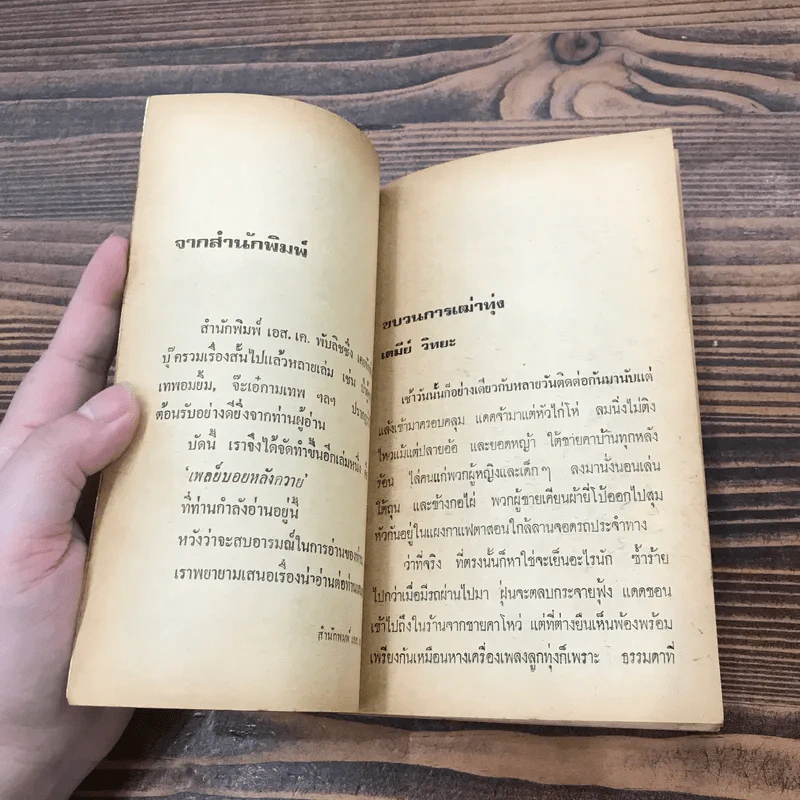 จากสำนักพิมพ์
สำนักพิมพ์ เอส. เค. พับลิชชิ่ง
บุ๊ครวมเรื่องสั้นไปแล้วหลายเล่ม เช่น
เทพอมยิ้ม, จ๊ะเอ๋กามเทพ ฯลฯ
ต้อนรับอย่างดียิ่งจากท่านผู้อ่าน
บัดนี้ เราจึงได้จัดทำขึ้นอีกเล่มหนึ่ง
'เพลย์บอยหลังควาย'
ที่ท่านกำลังอ่านอยู่นี้
หวังว่าจะสบอารมณ์ในการอ่านของท่าน
เราพยายามเสนอเรื่องน่าอ่านต่อท่าน
สำนักพิมพ์
ขบวนการเฒ่าทุ่ง
เตมีย์ วิทยะ
เช้าวันนั้นก็อย่างเดียวกับหลายวันติดต่อกันมานับแต่
แล้งเข้ามาครอบคลุม แดดจ้ามาแต่หัวไก่โห่ ลมนิ่งไม่ติง
ไหวแม้แต่ปลายอ้อ และยอดหญ้า ใต้ชายคาบ้านทุกหลัง
ร้อน ไล่คนแก่พวกผู้หญิงและเด็กๆ ลงมานั่งนอนเล่น
ใต้ถุน และข้างกอไผ่ พวกผู้ชายเคียนผ้ายี่โป้ออกไปสุม
หัวกันอยู่ในแผงกาแฟตาสอนใกล้ลานจอดรถประจำทาง
ว่าที่จริง ที่ตรงนั้นก็หาใช่จะเย็นอะไรนัก ซ้ำร้าย
ไปกว่าเมื่อมีรถผ่านไปมา ฝุ่นจะตลบกระจายฟุ้ง แดดชอน
เข้าไปถึงในร้านจากชายคาโหว่ แต่ที่ต่างยืนเห็นพ้องพร้อม
เพรียงกันเหมือนหางเครื่องเพลงลูกทุ่งก็เพราะ ธรรมดาที่